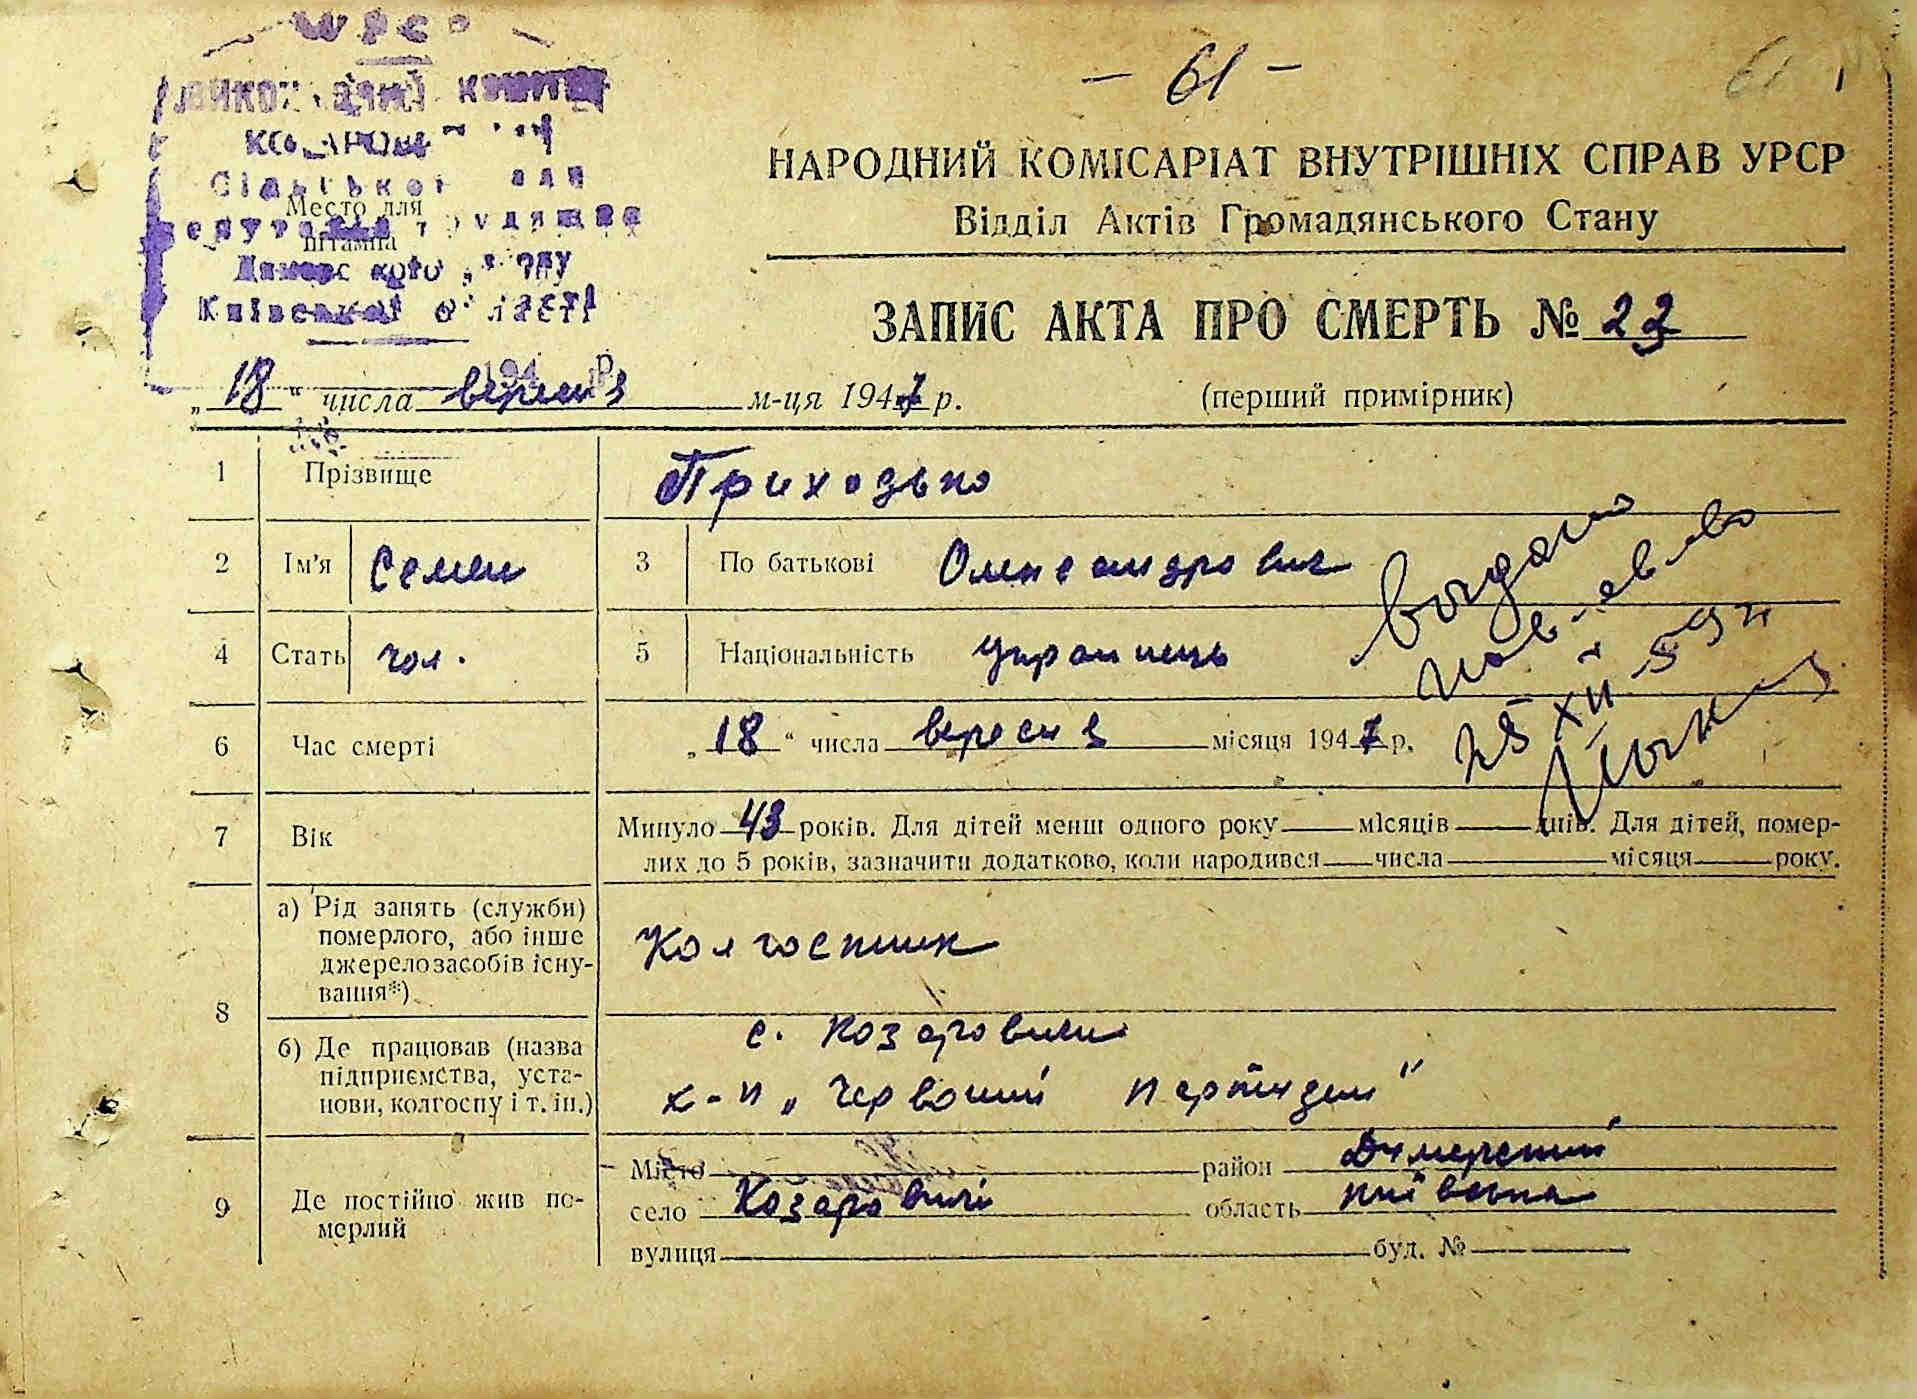 УРСР
Виконавчий комітет
Козаровицької
Сільської Ради
депутатів трудящих
Димерського р-ну
Київської області
Место для
штампа
— 61 —
61
НАРОДНИЙ КОМІСАРІАТ ВНУТРІШНІХ СПРАВ УРСР
Відділ Актів Громадянського Стану
ЗАПИС АКТА ПРО СМЕРТЬ № 23
„18“ числа вересня м-ця 1947 р. (перший примірник)
1 Прізвище Приходько
2 Ім'я Семен 3 По батькові Олександрович
4 Стать чол. 5 Національність українець
6 Час смерті „18“ числа вересня місяця 1947 р.
7 Вік Минуло 43 років. Для дітей менш одного року місяців днів. Для дітей, помер-
лих до 5 років, зазначити додатково, коли народився числа місяця року.
8 а) Рід занять (служби)
померлого, або інше
джерело засобів існу-
вання*)
Колгоспник
б) Де працював (назва
підприємства, уста-
нови, колгоспу і т. ін.)
с. Козаровичі
к-п „Червоний партизан"
9 Де постійно жив по-
мерлий
Місто район Димерський
село Козаровичі область Київська
вулиця буд. №
25 XII 59